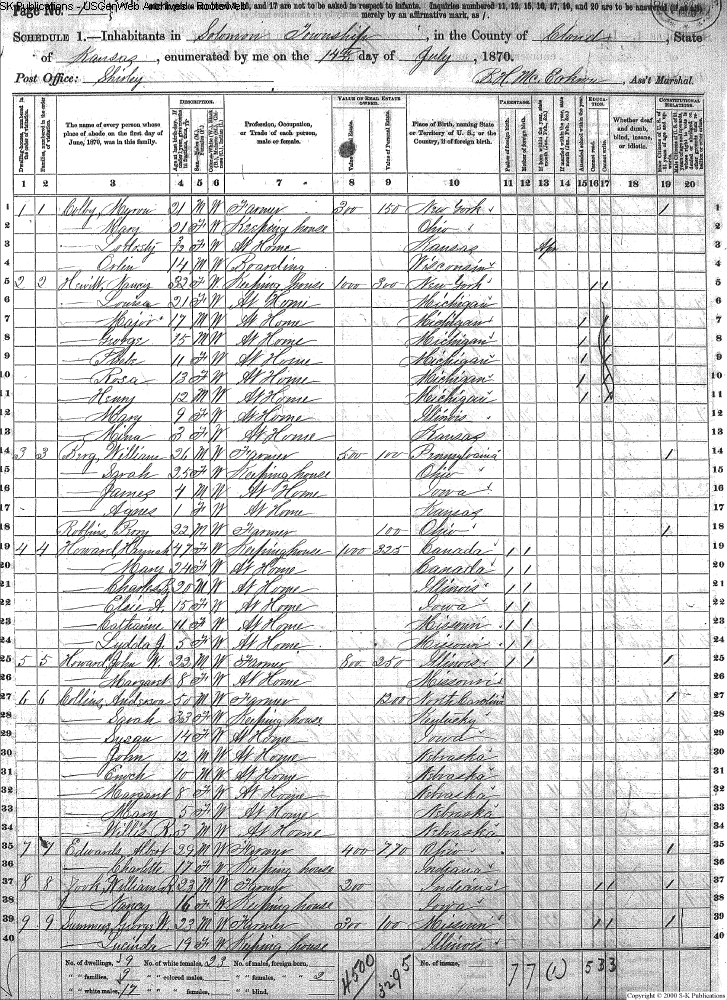 SK Publications - USGenWeb Archives - Rootsweb
Page No. 5 16, and 17 are not to be asked in respect to infants. Inquiries numbered 11, 12, 15, 16, 17, 19, and 20 are to be answered (if at all)
merely by an affirmative mark, as /.
SCHEDULE 1.—Inhabitants in Solomon Township, in the County of Cloud, State
of Kansas, enumerated by me on the 14th day of July, 1870.
Post Office: Shirley Ass't Marshal.
DESCRIPTION. VALUE OF REAL ESTATE OWNED. PARENTAGE. EDUCATION. CONSTITUTIONAL RELATIONS.
The name of every person whose place of abode on the first day of June, 1870, was in this family. Profession, Occupation, or Trade of each person, male or female. Place of Birth, naming State or Territory of U. S.; or the Country, if of foreign birth. Whether deaf and dumb, blind, insane, or idiotic.
1 2 3 4 5 6 7 8 9 10 11 12 13 14 15 16 17 18 19 20
1 1 1 Colby, Myron 21 M W Farmer 300 150 New York 1 1
2 — Mary 21 F W Keeping house Ohio 2
3 — F W At Home Kansas Apr 3
4 — Orlin 14 M W Boarding Wisconsin 4
5 2 2 Hewitt, Nancy 33 F W Keeping house 1000 300 New York 1 1 5
6 — Louisa 21 F W At Home Michigan 6
7 — Major 17 M W At Home Michigan 1 1 7
8 — George 15 M W At Home Michigan 1 1 8
9 — 11 F W At Home Michigan 1 1 9
10 — Rosa 13 F W At Home Michigan 1 1 10
11 — Henry 12 M W At Home Michigan 1 1 11
12 — Mary 9 F W At Home Illinois 12
13 — Mina 3 F W At Home Kansas 13
14 3 3 Berg, William 26 M W Farmer 500 100 Pennsylvania 1 14
15 — Sarah 25 F W Keeping house Ohio 15
16 — James 4 M W At Home Iowa 16
17 — Agnes 1 F W At Home Kansas 17
18 Robbins, 22 M W Farmer 100 Ohio 1 18
19 4 4 Howard, Hannah 47 F W Keeping house 1000 325 Canada 1 1 19
20 — Mary 24 F W At Home Canada 1 1 20
21 — Charles 20 M W At Home Illinois 1 1 21
22 — Elsie A. 15 F W At Home Iowa 1 1 22
23 — Catharine 11 F W At Home Missouri 1 1 23
24 — Lydda J. 5 F W At Home Missouri 1 1 24
25 5 5 Howard, John W. 22 M W Farmer 800 250 Illinois 1 1 1 25
26 — Margaret 8 F W At Home Missouri 26
27 6 6 Collins, Anderson 50 M W Farmer 1200 North Carolina 1 27
28 — Sarah 33 F W Keeping house Kentucky 28
29 — Susan 14 F W At Home Iowa 29
30 — John 12 M W At Home Nebraska 30
31 — Enoch 10 M W At Home Nebraska 31
32 — Margaret 8 F W At Home Nebraska 32
33 — Mary 5 F W At Home Nebraska 33
34 — Willis R. 3 M W At Home Nebraska 34
35 7 7 Edwards, Albert 29 M W Farmer 400 770 Ohio 1 35
36 — Charlotte 17 F W Keeping house Indiana 36
37 8 8 William R. 23 M W Farmer 200 Indiana 1 1 1 37
38 — Nancy 16 F W Keeping house Iowa 38
39 9 9 Summers, George W. 23 M W Farmer 300 100 Missouri 1 1 1 39
40 — Lucinda 19 F W Keeping house Illinois 40
No. of dwellings, 9 No. of white females, 23 No. of males, foreign born, No. of insane,
" " families, 9 " " colored males, " " females, " " 2 4500 3295 7 7 (1) 5 3 3
" " white males, 17 " " females, " " blind,
Copyright © 2000 S-K Publications